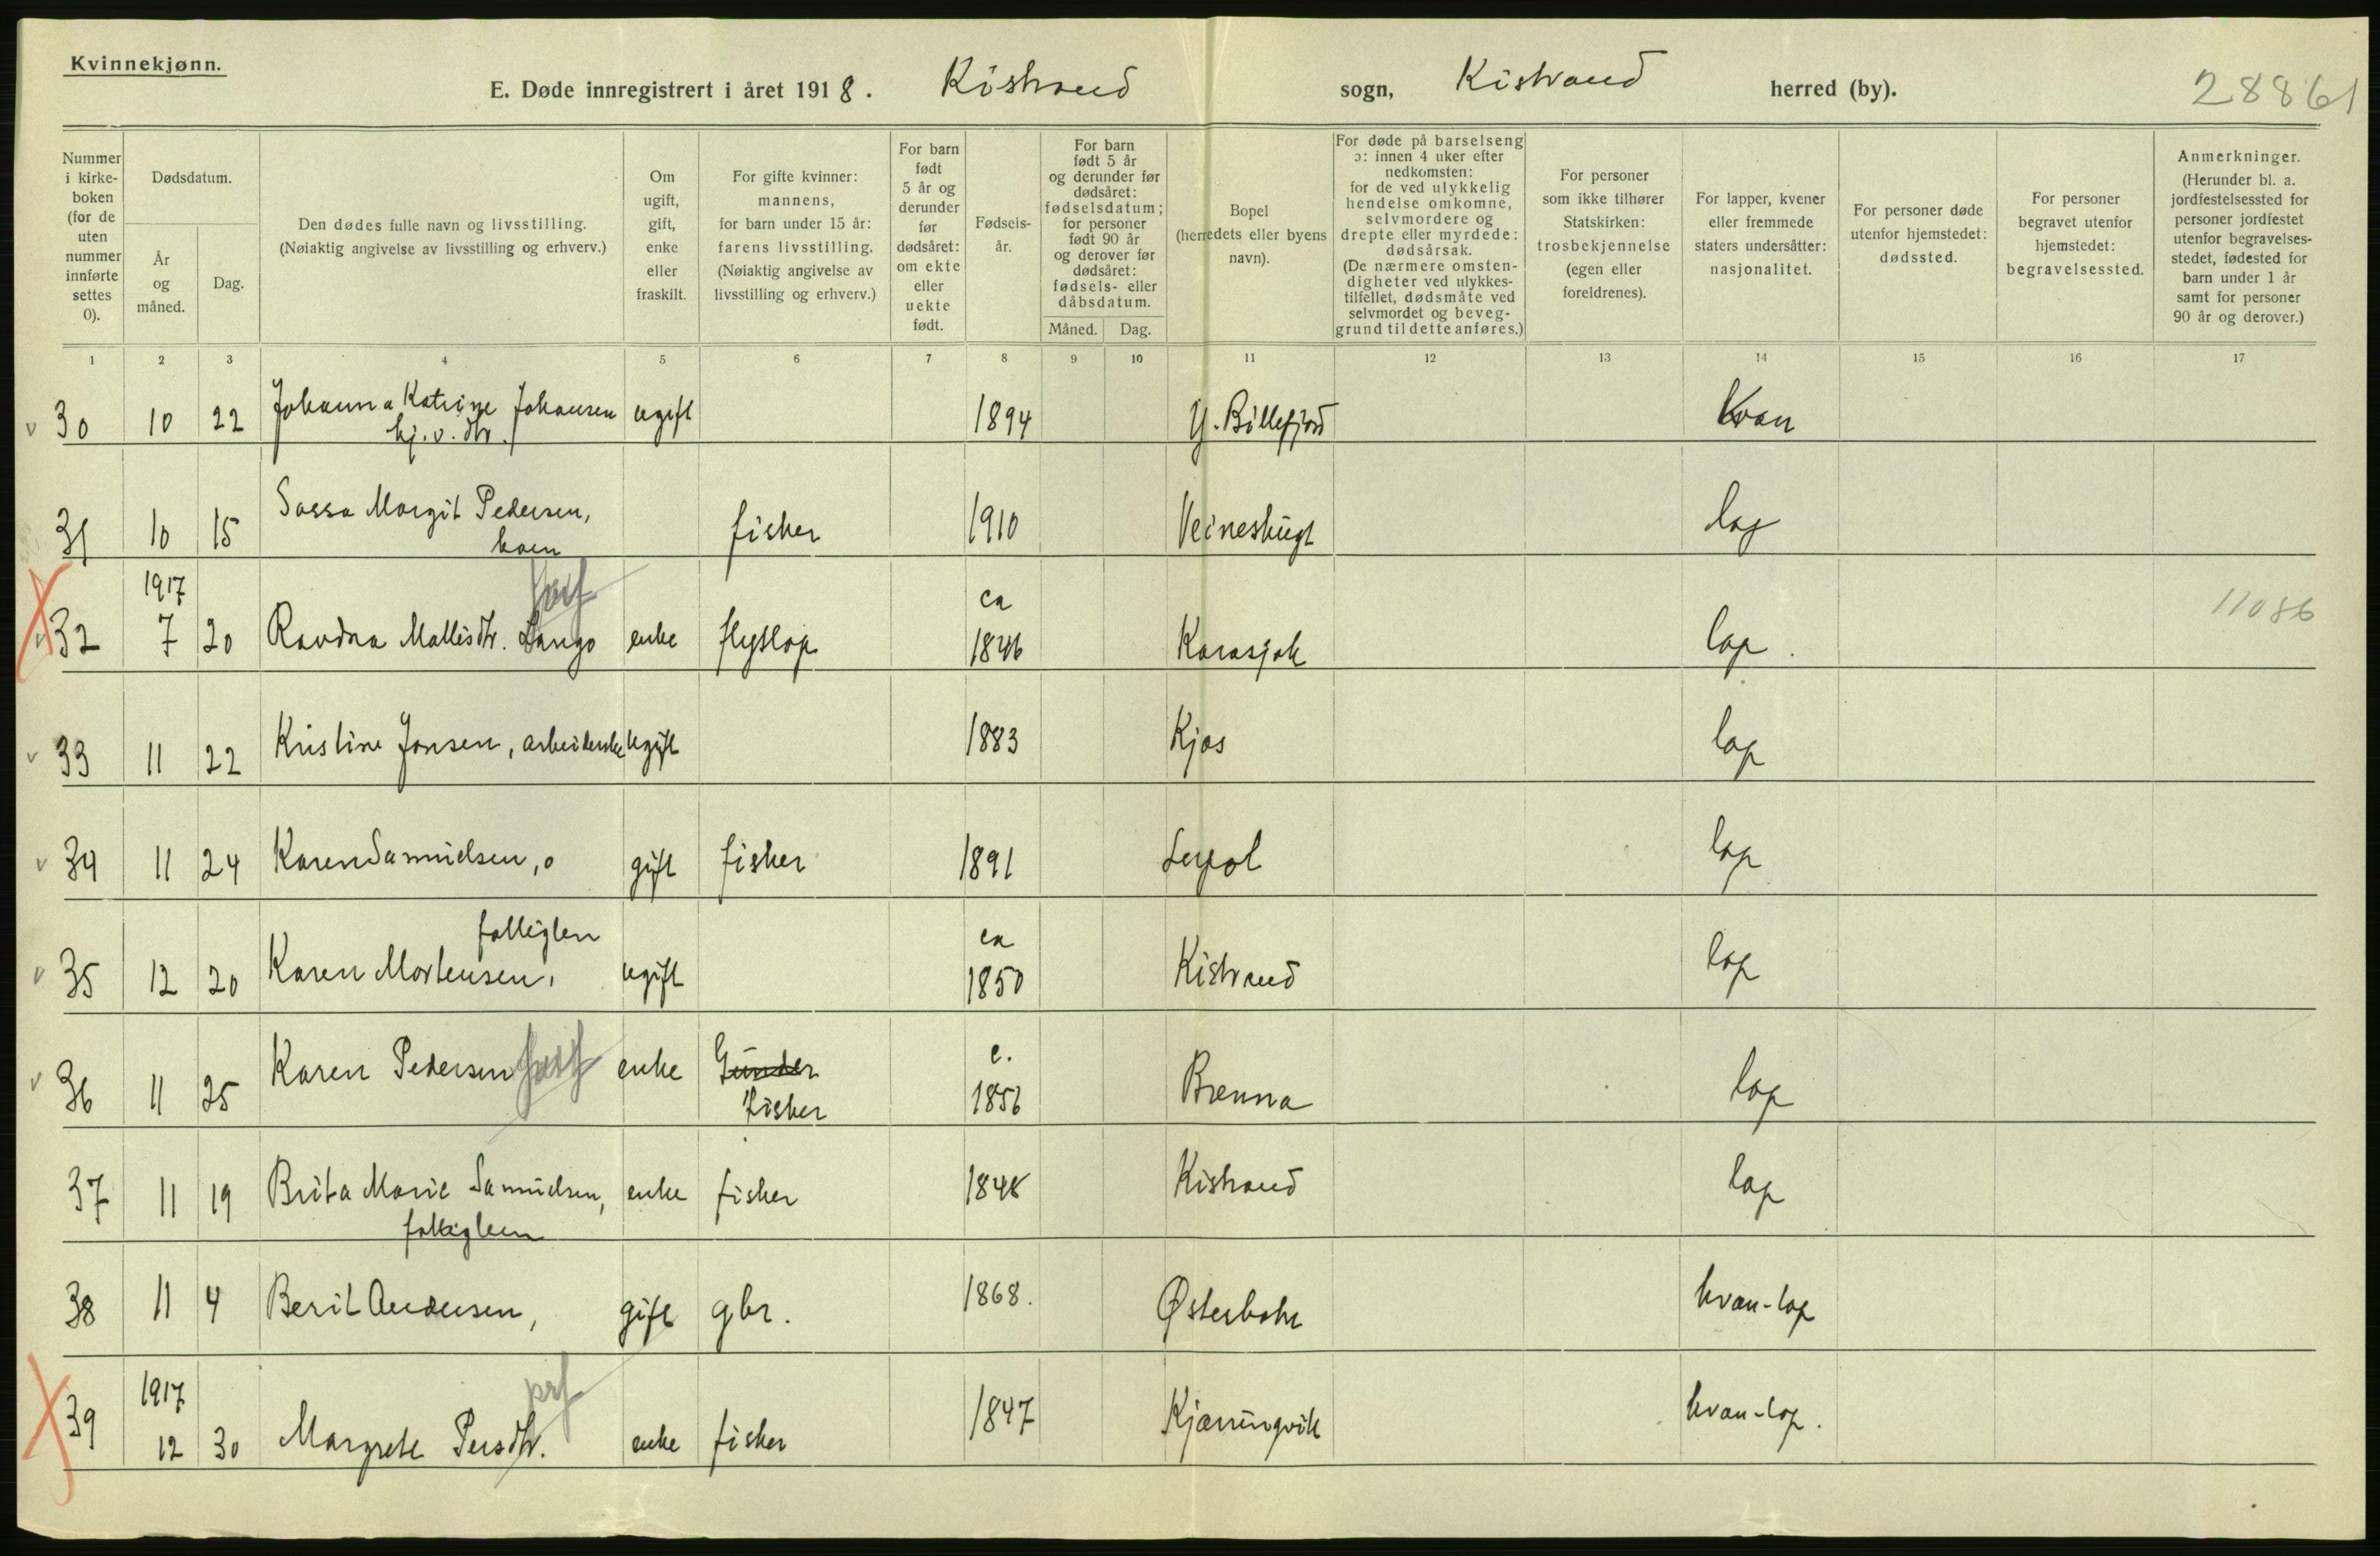 Kvinnekjønn.
E. Døde innregistrert i året 1918. Kistrand sogn, Kistrand herred (by). 28861
Nummer i kirke- boken (for de uten nummer innførte settes 0).
Dødsdatum.
År og måned.
Dag.
Den dødes fulle navn og livsstilling.
(Nøiaktig angivelse av livsstilling og erhverv.)
Om ugift, gift, enke eller fraskilt.
For gifte kvinner: mannens, for barn under 15 år: farens livsstilling. (Nøiaktig angivelse av livsstilling og erhverv.)
For barn født 5 år og derunder før dødsåret: om ekte eller uekte født.
Fødsels- år.
For barn født 5 år og derunder før dødsåret: fødselsdatum; for personer født 90 år og derover før dødsåret: fødsels- eller dåbsdatum.
Måned. Dag.
Bopel (herredets eller byens navn).
For døde på barselseng ɔ: innen 4 uker efter nedkomsten: for de ved ulykkelig hendelse omkomne, selvmordere og drepte eller myrdede: dødsårsak. (De nærmere omsten- digheter ved ulykkes- tilfellet, dødsmåte ved selvmordet og beveg- grund til dette anføres.)
For personer som ikke tilhører Statskirken: trosbekjennelse (egen eller foreldrenes).
For lapper, kvener eller fremmede staters undersåtter: nasjonalitet.
For personer døde utenfor hjemstedet: dødssted.
For personer begravet utenfor hjemstedet: begravelsessted.
Anmerkninger. (Herunder bl. a. jordfestelsessted for personer jordfestet utenfor begravelses- stedet, fødested for barn under 1 år samt for personer 90 år og derover.)
1 2 3 4 5 6 7 8 9 10 11 12 13 14 15 16 17
v 30 10 22 Johanna Katrine Johansen ugift 1894 Y. Billefjord Kvæn
hj. v. dtr.
31 10 15 Sassa Margit Pedersen, fisher 1910 Veineshugt lap
barn
1917 ca
v 32 7 20 Ravdna Mattisdtr. Lango enke flytlap 1846 Karasjok lap. 11086
v 33 11 22 Kristine Jonsen, arbeiderske ugift 1883 Kjæs lap
v 34 11 24 Karen Samuelsen, o gift fisker 1891 lap
fattiglem ca
v 35 12 20 Karen Mortensen, ugift 1850 Kistrand lap
v 36 11 25 Karen Pedersen enke Gunder c. 1856 Brenna lap
fisker
37 11 19 Brita Marie Samuelsen, enke fisker 1848 Kistrand lap
fattiglem
38 11 4 Berit Andersen, gift gbr. 1868. Østerbotn kvæn-lap
1917
39 12 30 Margrete Persdtr. enke fisker 1847 Kjærringvik kvæn-lap.